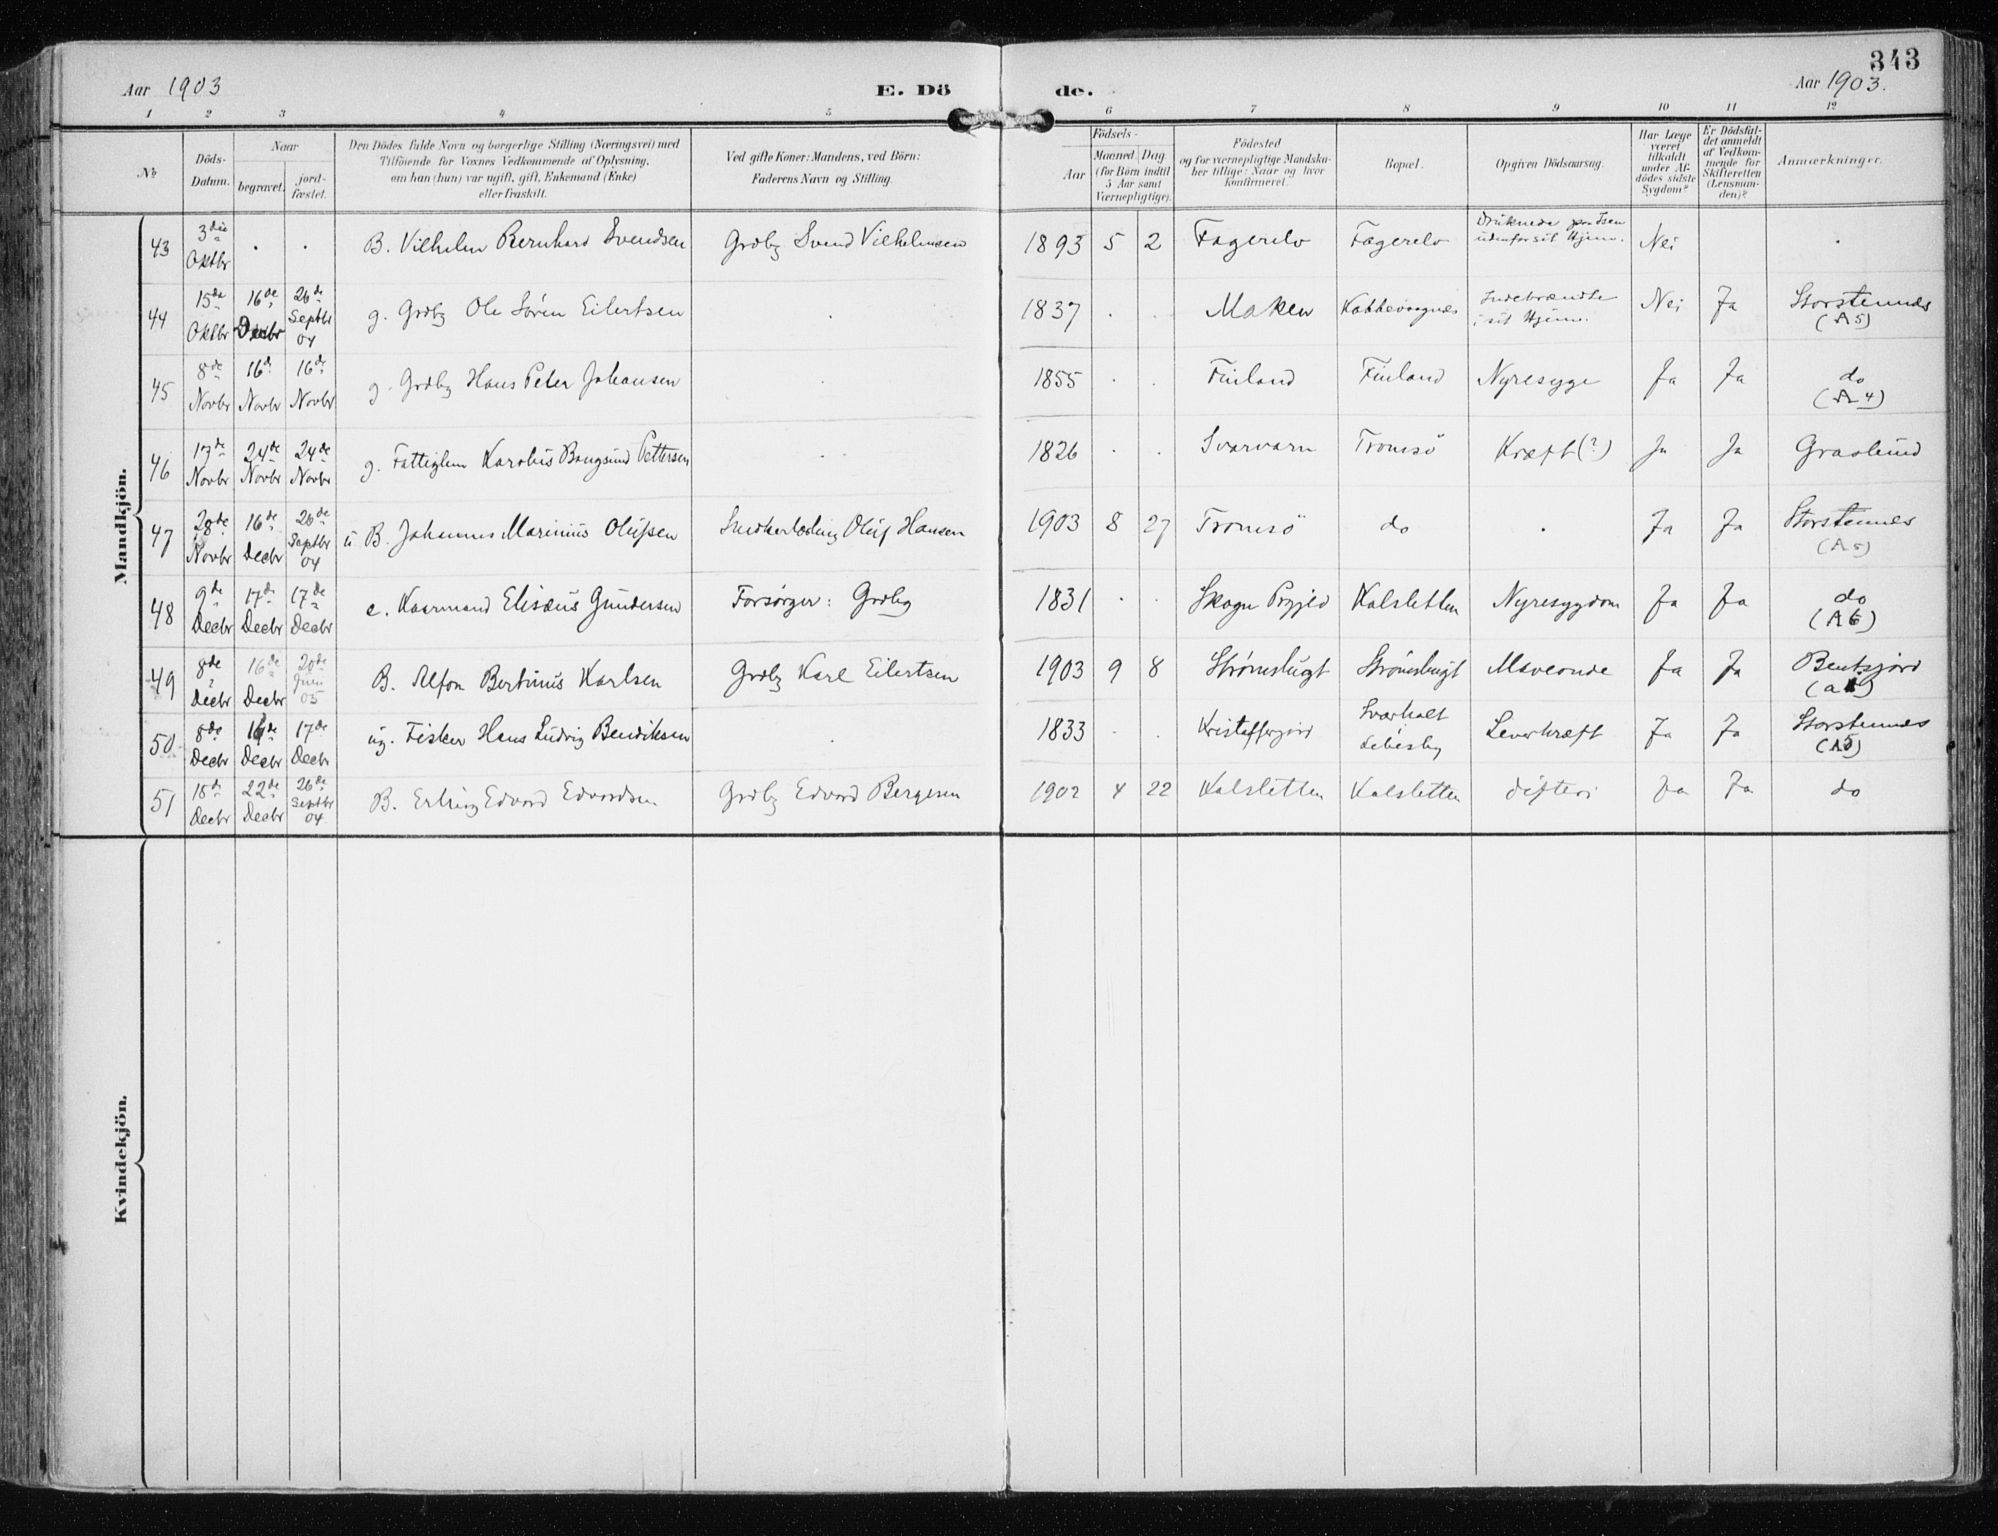 343
Aar 1903
E. Dö
de.
Aar 1903.
1 2 3 4 5 6 7 8 9 10 11 12
№
Döds-
Datum.
Naar
begravet.
jord-
fæstet.
Den Dödes fulde Navn og borgerlige Stilling (Næringsvei) med
Tilföiende for Voxnes Vedkommende af Oplysning,
om han (hun) var ugift, gift, Enkemand (Enke)
eller fraskilt.
Ved gifte Koner: Mandens, ved Börn:
Faderens Navn og Stilling.
Födsels-
Aar
Maaned. Dag.
(for Börn indtil
5 Aar samt
Værnepligtige).
Födested
og for værnepligtige Mandska-
ber tillige: Naar og hvor
konfirmeret.
Bopæl.
Opgiven Dödsaarsag.
Har Læge
været
tilkaldt
under Af-
dödes sidste
Sygdom?
Er Dödsfal-
det anmeldt
af Vedkom-
mende for
Skifteretten
(Lensman-
den)?
Anmærkninger.
Mandkjön.
43 3die Oktbr . . B. Vilhelm Bernhard Svendsen Grdbg Svend Vilhelmsen 1893 5 2 Fagerelv Fagerelv Druknede paa Isen udenfor sit Hjem. Nei .
44 15de Oktbr 16de Decbr 26de Septbr 04 g. Grdbg Ole Sören Eilertsen . 1837 . . Maken Kobbevaagnes Indebrændte i sit Hjem. Nei Ja Storstennes (A5)
45 8de Novbr 16de Novbr 16de Novbr g. Grdbg Hans Peter Johansen . 1855 . . Finland Finland Nyresyge Ja Ja do (A4)
46 17de Novbr 24de Novbr 24de Novbr g. Fattiglem Karolus Bangsund Pettersen . 1826 . . Svarvarn Tromsö Kræft (?) Ja Ja Graslund
47 28de Novbr 16de Decbr 26de Septbr 04 u B. Johannes Marinius Olufsen Snedkerlærling Oluf Hansen 1903 8 27 Tromsö do . Ja Ja Storstennes (A5)
48 9de Decbr 17de Decbr 17de Decbr e. Kaarmand Elisæus Gundersen Forsörger: Grdbg 1831 . . Skogn Prgjld Kalsletten Nyresygdom Ja Ja do (A6)
49 8de Decbr 16de Decbr 20de Juni 05 B. Alfon Bertinius Karlsen Grdbg Karl Eilertsen 1903 9 8 Strømsbugt Strømsbugt Maveonde Ja Ja Bentsjord
50 8de Decbr 16de Decbr 17de Decbr ug. Fisker Hans Ludvig Bendiksen . 1833 . . Kristoffergjord Sværholt Lebesby Leverkræft Ja Ja Storstennes (A5)
51 18de Decbr 22de Decbr 26de Septbr 04 B. Erling Edvard Edvardsen Grdbg Edvard Bergesen 1902 4 22 Kalsletten Kalsletten difteri Ja Ja do
Kvindekjön.